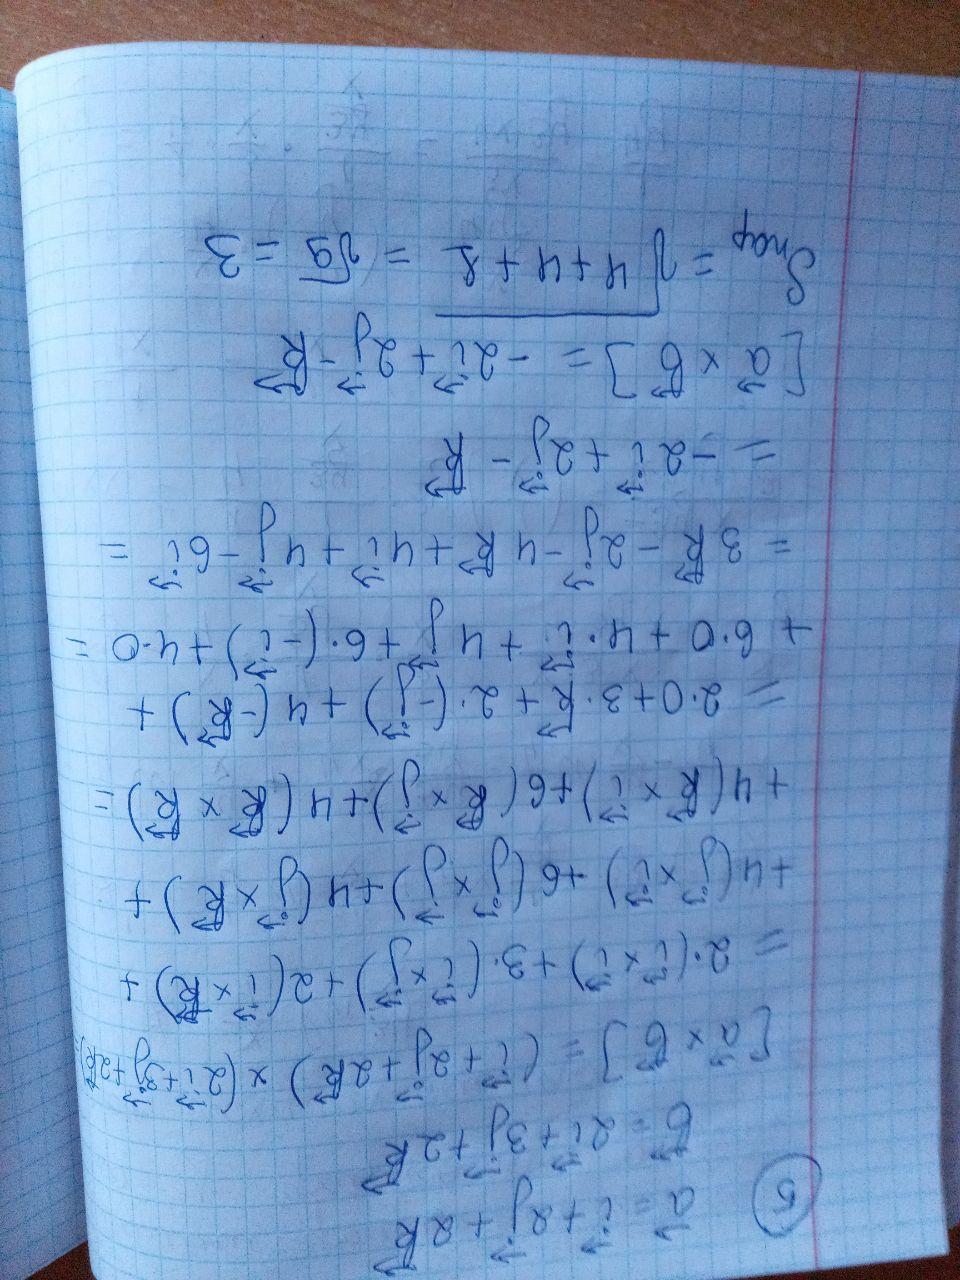 5
a⃗ = i⃗ + 2j⃗ + 2k⃗
b⃗ = 2i⃗ + 3j⃗ + 2k⃗
[a⃗ × b⃗] = (i⃗ + 2j⃗ + 2k⃗) × (2i⃗ + 3j⃗ + 2k⃗) =
= 2·(i⃗ × i⃗) + 3·(i⃗ × j⃗) + 2(i⃗ × k⃗) +
+ 4(j⃗ × i⃗) + 6(j⃗ × j⃗) + 4(j⃗ × k⃗) +
+ 4(k⃗ × i⃗) + 6(k⃗ × j⃗) + 4(k⃗ × k⃗) =
= 2·0 + 3·k⃗ + 2·(-j⃗) + 4(-k⃗) +
+ 6·0 + 4·i⃗ + 4j⃗ + 6·(-i⃗) + 4·0 =
= 3k⃗ - 2j⃗ - 4k⃗ + 4i⃗ + 4j⃗ - 6i⃗ =
= -2i⃗ + 2j⃗ - k⃗
[a⃗ × b⃗] = -2i⃗ + 2j⃗ - k⃗
Sпар = √(4 + 4 + 1) = √9 = 3